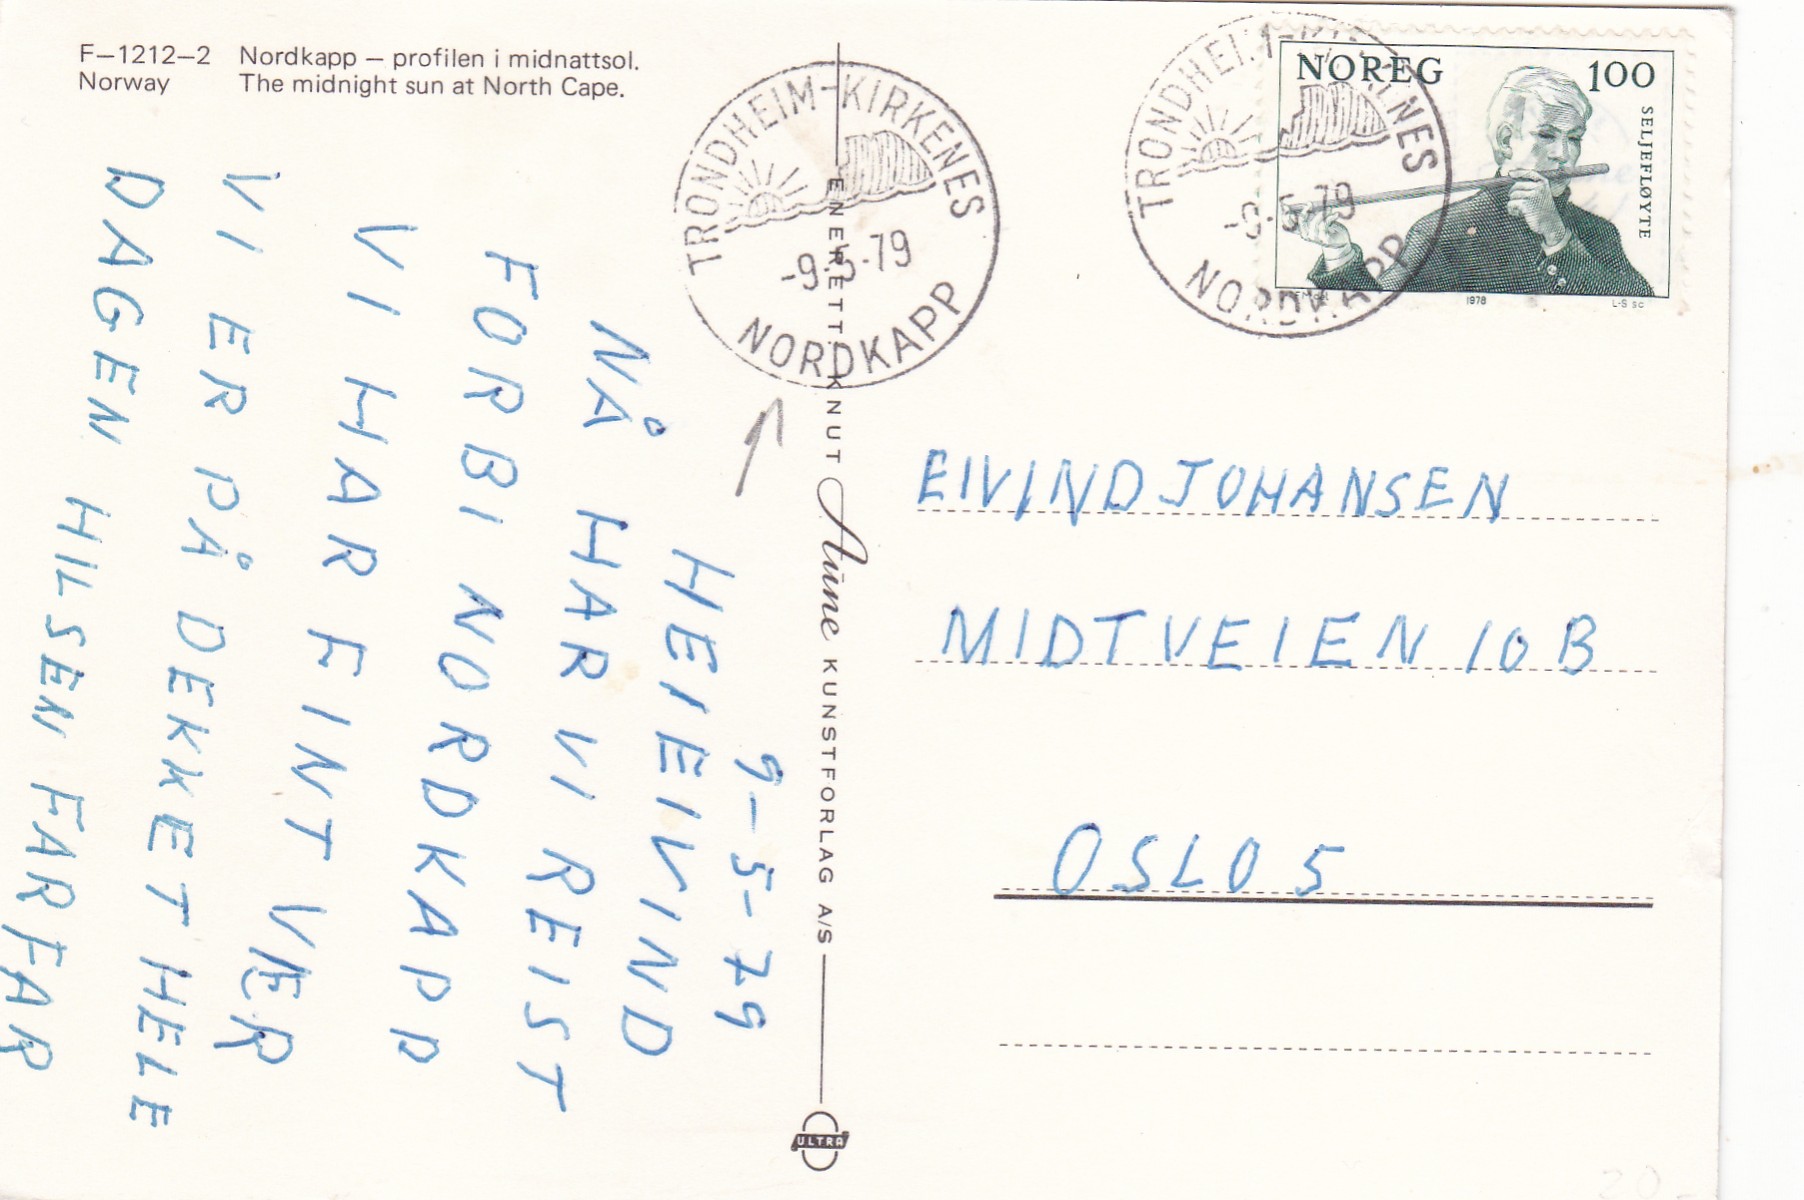 F–1212–2 Nordkapp – profilen i midnattsol.
Norway The midnight sun at North Cape.
TRONDHEIM-KIRKENES
-9.5-79
NORDKAPP
TRONDHEIM-KIRKENES
-9.5-79
NORDKAPP
NOREG 100
SELJEFLØYTE
1978
L-S sc
9-5-79
HEI EIVIND
NÅ HAR VI REIST
FORBI NORDKAPP
VI HAR FINT VÆR
VI ER PÅ DEKKET HELE
DAGEN HILSEN FARFAR
ENERETT: KNUT Aune KUNSTFORLAG A/S
ULTRA
EIVIND JOHANSEN
MIDTVEIEN 10 B
OSLO 5
20